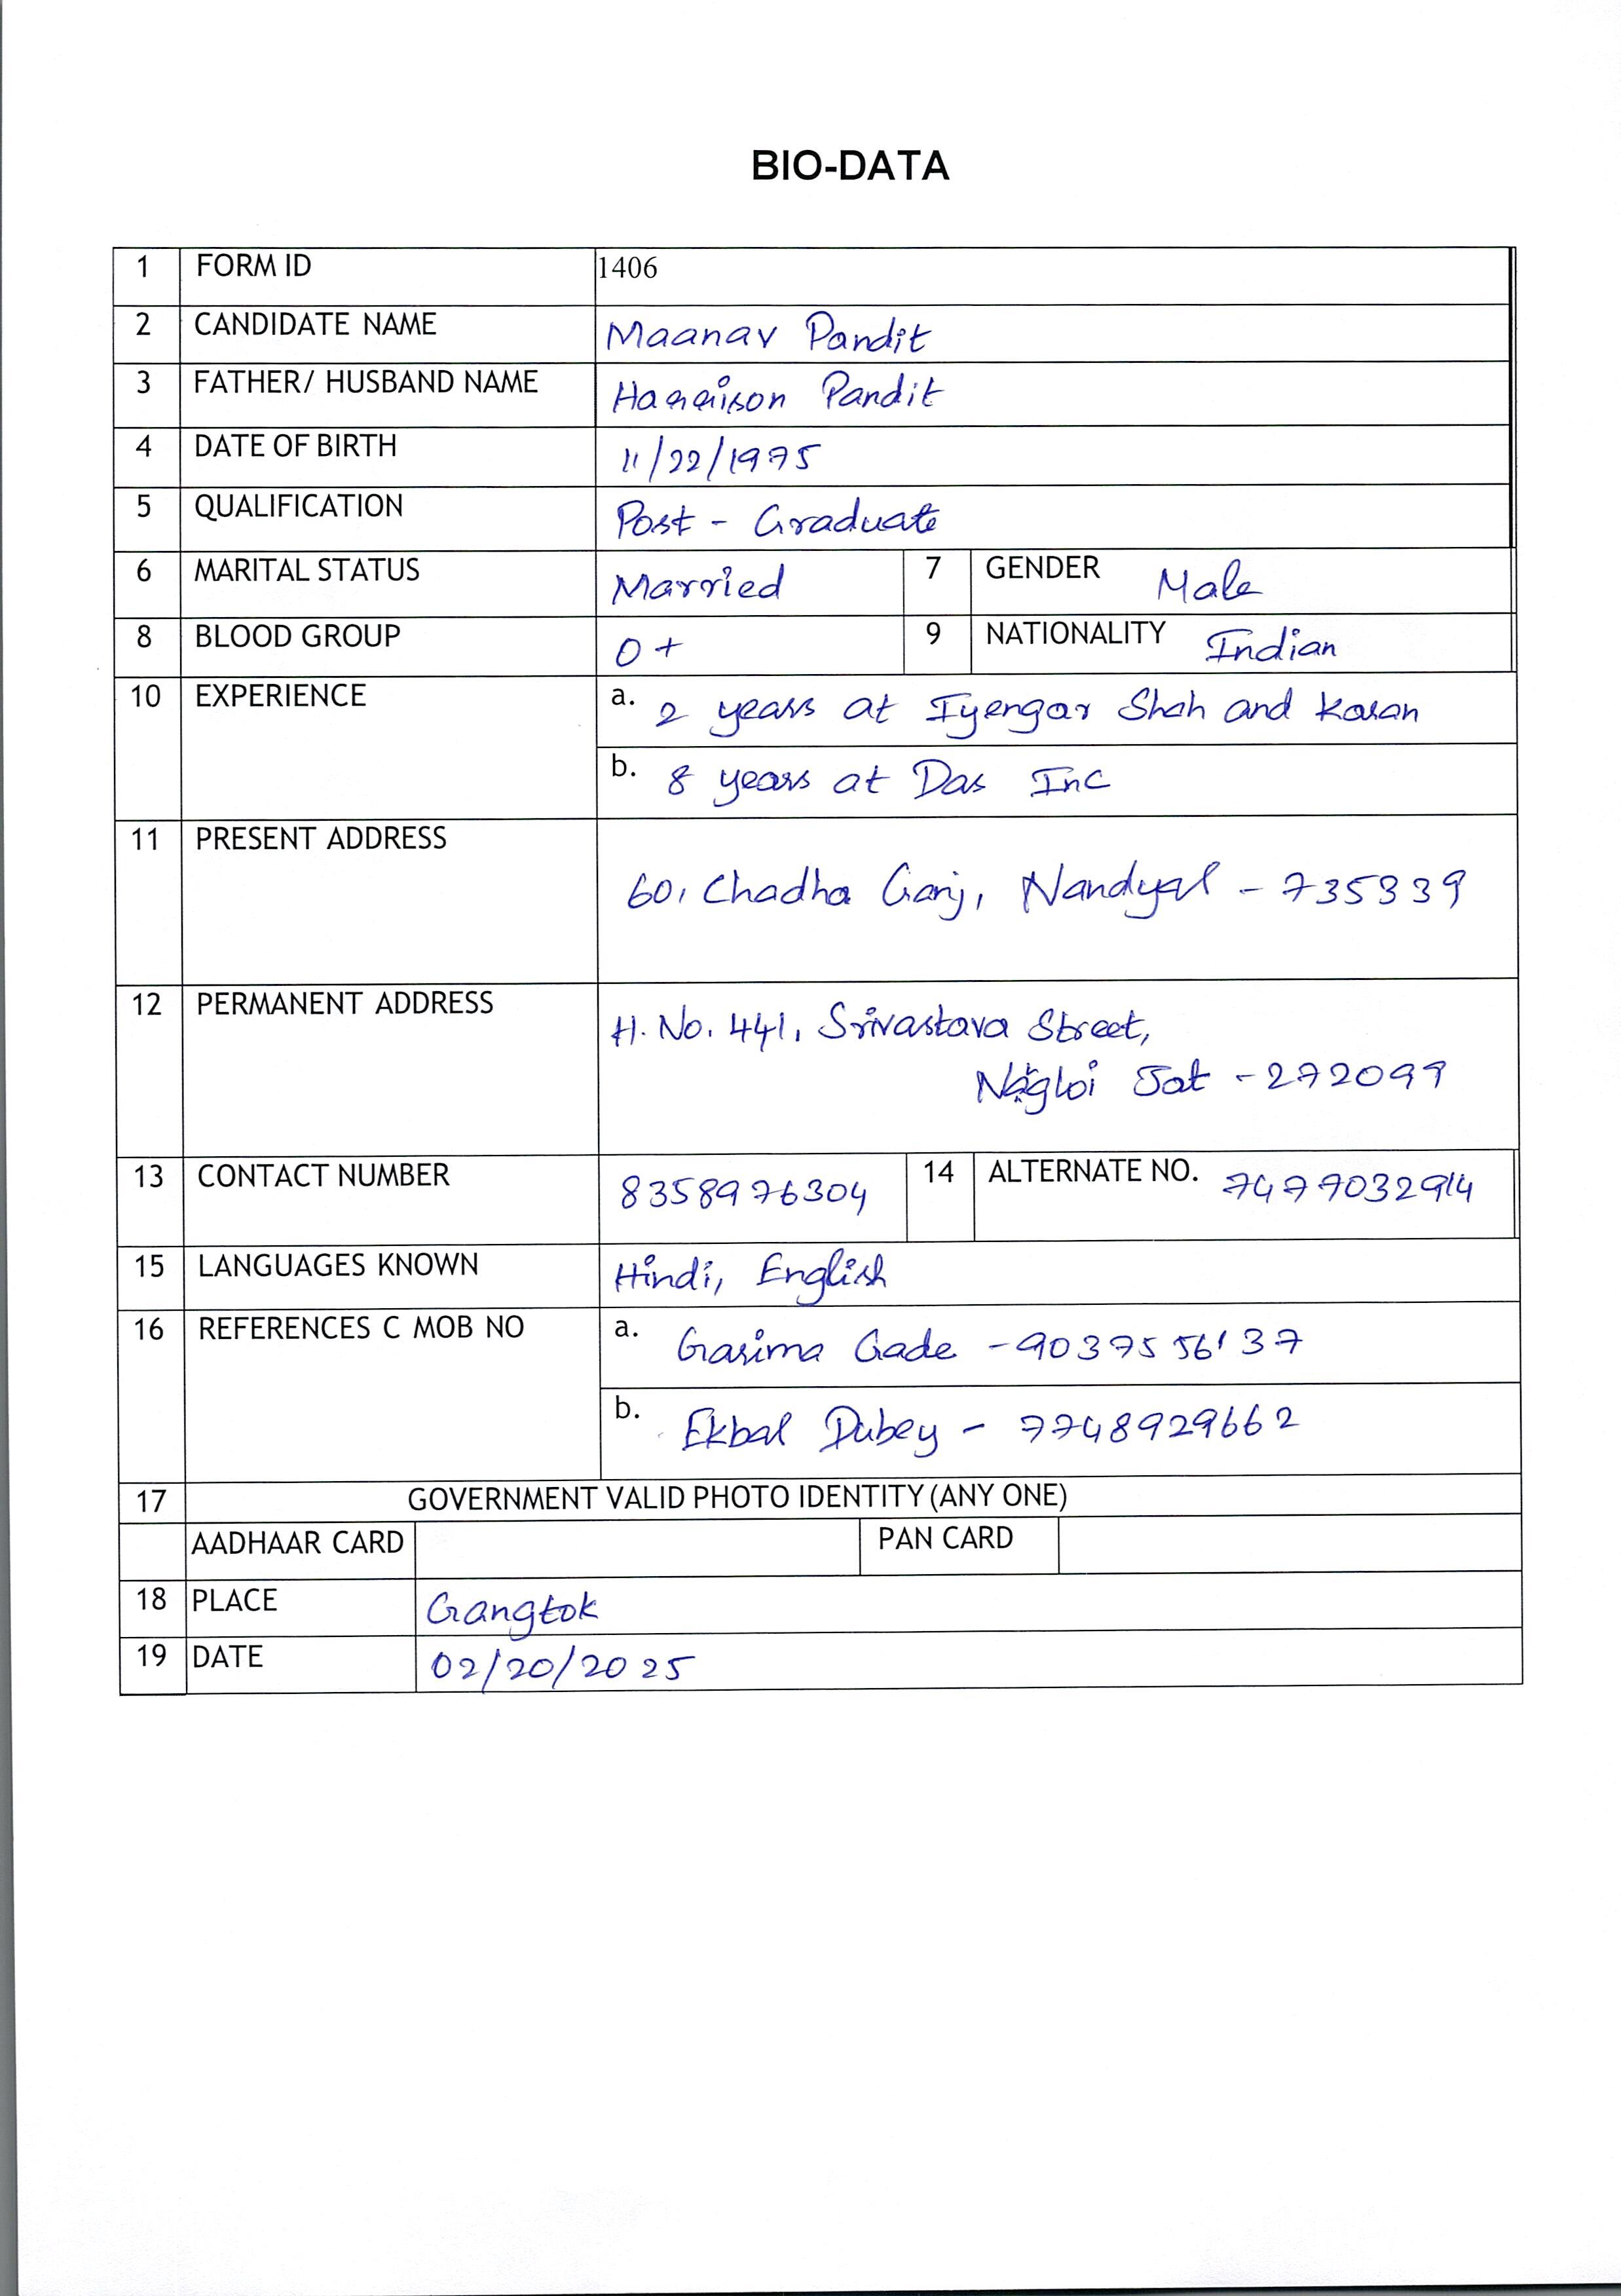 BIO-DATA
1 FORM ID 1406
2 CANDIDATE NAME Maanav Pandit
3 FATHER/ HUSBAND NAME Harrison Pandit
4 DATE OF BIRTH 11/22/1975
5 QUALIFICATION Post - Graduate
6 MARITAL STATUS Married 7 GENDER Male
8 BLOOD GROUP O+ 9 NATIONALITY Indian
10 EXPERIENCE a. 2 years at Iyengar Shah and Karan
b. 8 years at Das Inc
11 PRESENT ADDRESS
60, Chadha Ganj, Nandyal - 735339
12 PERMANENT ADDRESS
H. No. 441, Srivastava Street,
Nagloi Jat - 272099
13 CONTACT NUMBER 8358976304 14 ALTERNATE NO. 7477032914
15 LANGUAGES KNOWN Hindi, English
16 REFERENCES C MOB NO a. Garima Gade - 9037556137
b. Ekbal Dubey - 7748929662
17 GOVERNMENT VALID PHOTO IDENTITY (ANY ONE)
AADHAAR CARD PAN CARD
18 PLACE Gangtok
19 DATE 02/20/2025